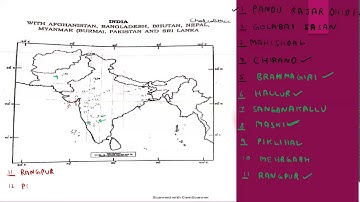 INDIA
WITH AFGHANISTAN, BANGLADESH, BHUTAN, NEPAL,
MYANMAR (BURMA), PAKISTAN AND SRI LANKA
11 RANGPUR
12 P
1 PANDU RAJAR DHIBI
2 GOLABAI SASAN
3 MAHISHDAL
4 CHIRAND ✓
5 BRAHMAGIRI ✓
6 HALLUR ✓
7 SANGANAKALLU
8 MASKI ✓
9 PIKLIHAL
10 MEHRGARH
11 RANGPUR ✓
Scanned with CamScanner